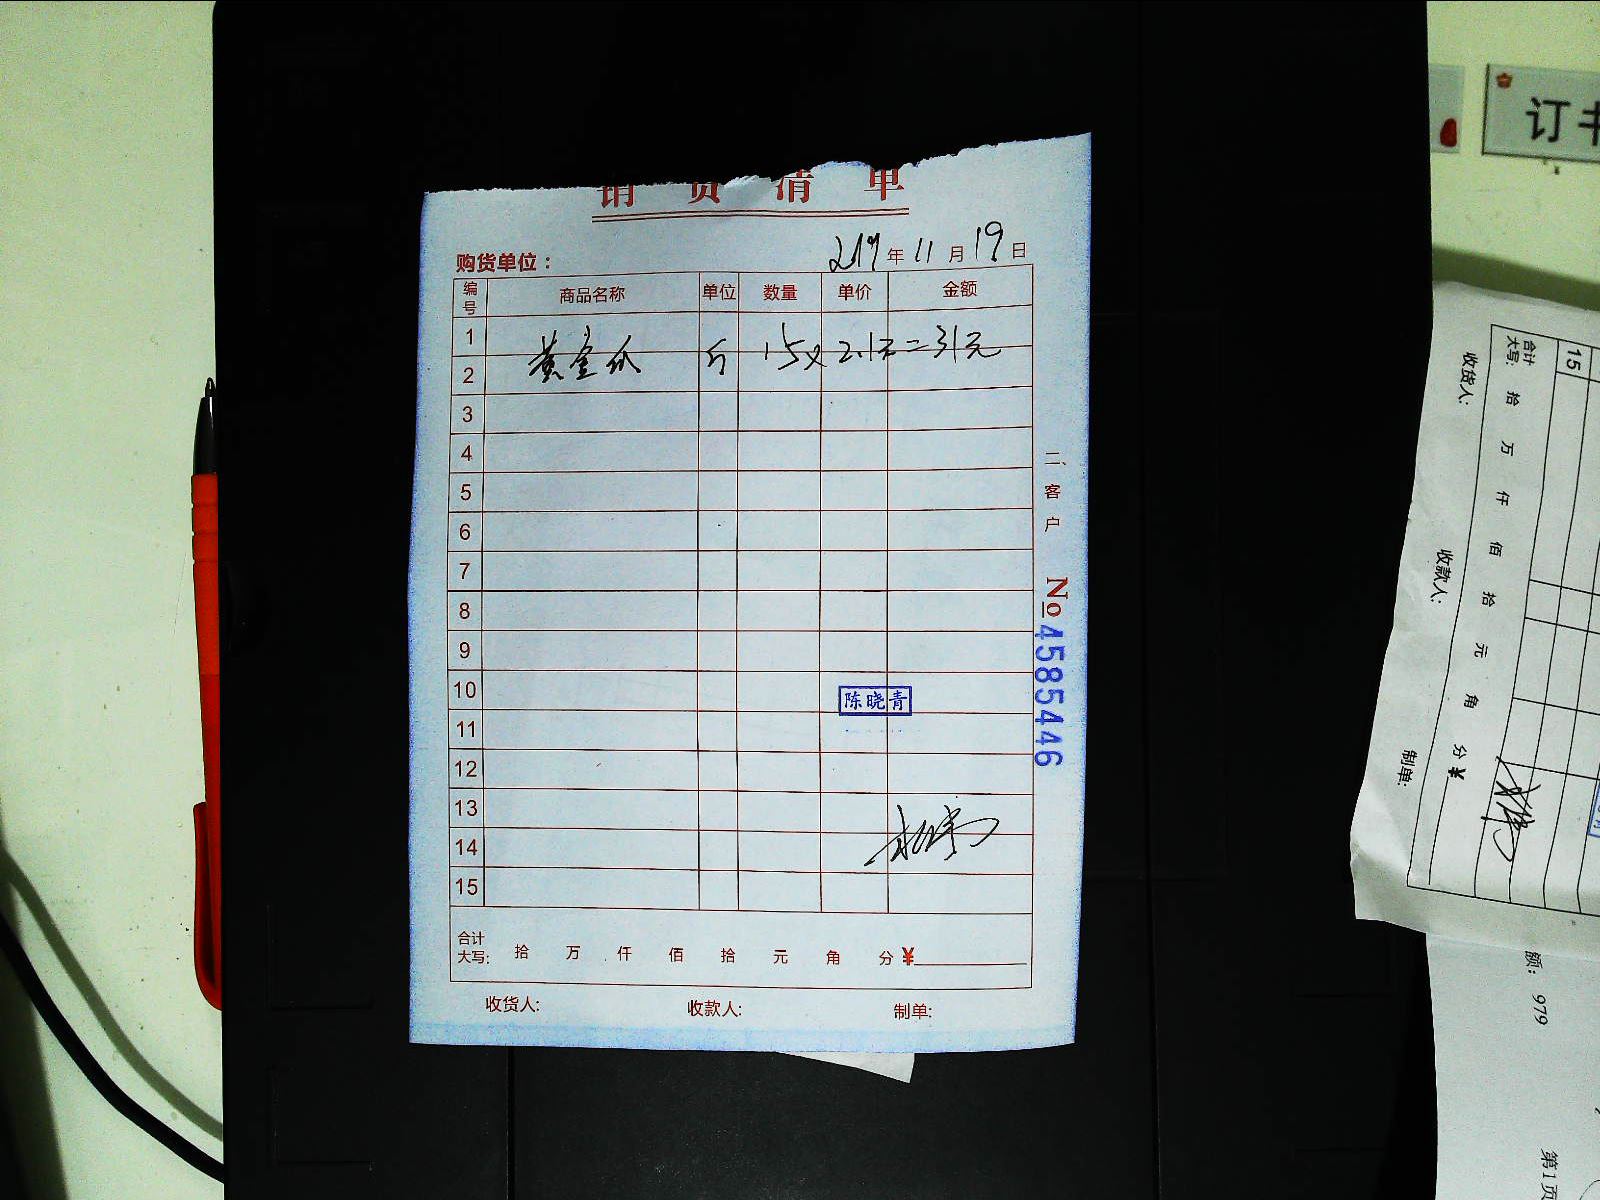 销货清单
购货单位：
2019年11月19日
编号 商品名称 单位 数量 单价 金额
1
2 黄金瓜 斤 15 x 2.1元=31元
3
4
5
6
7
8
9
10
11
12
13
14
15
陈晓青
合计大写: 拾 万 仟 佰 拾 元 角 分 ¥
收货人: 收款人: 制单:
二、客户
No 4585446
订书
15
合计大写: 拾 万 仟 佰 拾 元 角 分 ¥
收货人: 收款人: 制单:
额: 979
第1页